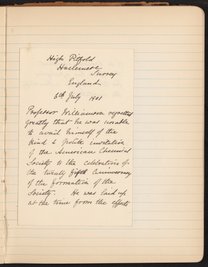 High Pitfold
Haslemere
Surrey
England.
5th July 1901
Professor Williamson regretted
greatly that he was unable
to avail himself of the
kind & polite invitation
of the American Chemical
Society to the celebration of
the twenty fifth anniversary
of the formation of the
Society. He was laid up
at the time from the effects